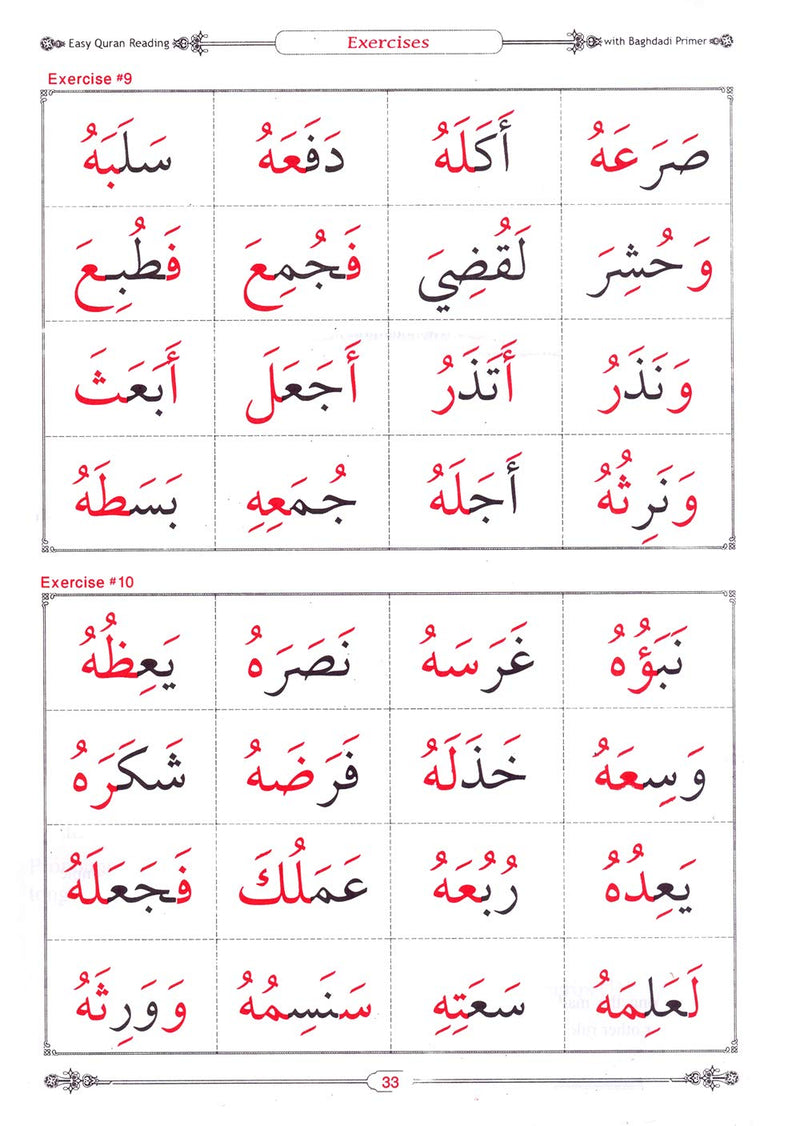 Easy Quran Reading Exercises with Baghdadi Primer
Exercise #9
صَرَعَهُ أَكَلَهُ دَفَعَهُ سَلَبَهُ
وَحُشِرَ لَقُضِيَ فَجُمِعَ فَطُبِعَ
وَنَذَرُ أَتَذَرُ أَجَعَلَ أَبَعَثَ
وَنَرِثُهُ أَجَلَهُ جُمَعِهِ بَسَطَهُ
Exercise #10
نَبَؤُهُ غَرَسَهُ نَصَرَهُ يَعِظُهُ
وَسِعَهُ خَذَلَهُ فَرَضَهُ شَكَرَهُ
يَعِدُهُ رُبُعَهُ عَمَلُكَ فَجَعَلَهُ
لَعَلِمَهُ سَعَتِهِ سَنَسِمُهُ وَوَرِثَهُ
33